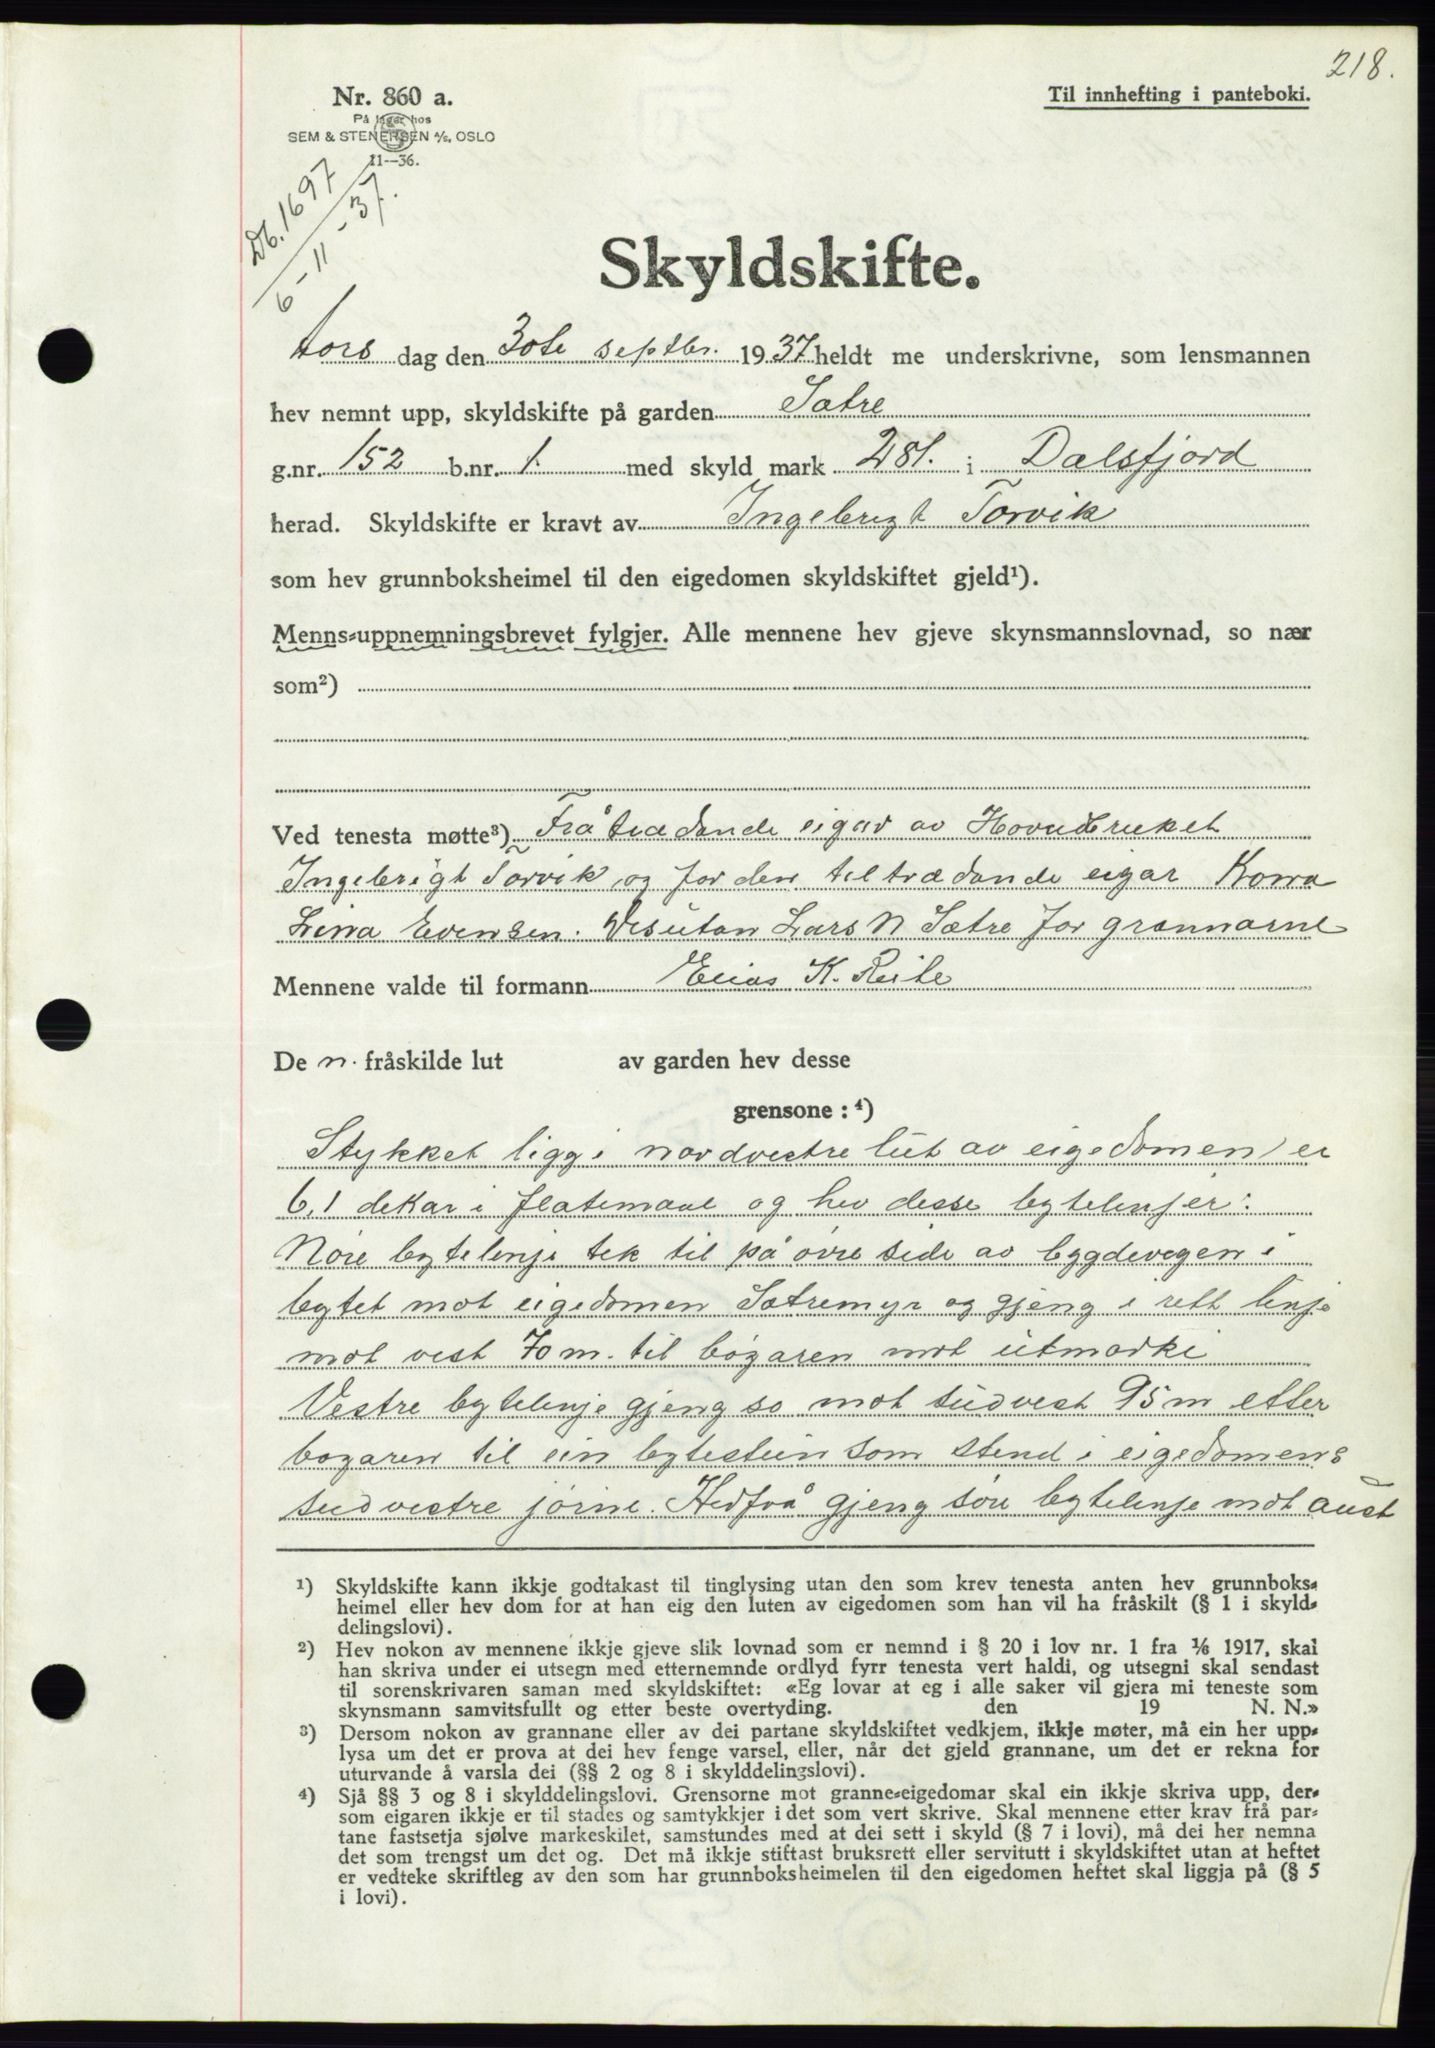 218.
Nr. 860 a.
Til innhefting i panteboki.
På lager hos
SEM & STENERSEN A/S, OSLO
11--36.
Db. 1697
6-11-37.
Skyldskifte.
Tors dag den 30te septbr. 1937 heldt me underskrivne, som lensmannen
hev nemnt upp, skyldskifte på garden Sætre
g.nr. 152 b.nr. 1. med skyld mark 2 81. i Dalsfjord
herad. Skyldskifte er kravt av Ingebrigt Torvik
som hev grunnboksheimel til den eigedomen skyldskiftet gjeld¹).
Menns-uppnemningsbrevet fylgjer. Alle mennene hev gjeve skynsmannslovnad, so nær
som²)
Ved tenesta møtte³) Fråtrædande eigar av Hovudbruket
Ingebrigt Torvik og for den tiltrædande eigar Korra
Lina Evensen. Desutan Lars N Sætre for grannarne
Mennene valde til formann Elias K. Reite
De n. fråskilde lut av garden hev desse
grensone : ⁴)
Stykket ligg i nordvestre lut av eigedomen, er
6,1 dekar i flatemaal og hev desse bytelinjer:
Nøre bytelinje tek til på øvre side av bygdevegen i
bytet mot eigedomen Sætremyr og gjeng i rett linje
mot vest 70 m. til bøgaren mot utmarki
Vestre bytelinje gjeng so mot sudvest 95 m etter
bøgaren til ein bytestein som stend i eigedomens
sudvestre jørne. Hedfrå gjeng søre bytelinje mot aust
¹) Skyldskifte kann ikkje godtakast til tinglysing utan den som krev tenesta anten hev grunnboks-
heimel eller hev dom for at han eig den luten av eigedomen som han vil ha fråskilt (§ 1 i skyld-
delingslovi).
²) Hev nokon av mennene ikkje gjeve slik lovnad som er nemnd i § 20 i lov nr. 1 fra 1/6 1917, skal
han skriva under ei utsegn med etternemnde ordlyd fyrr tenesta vert haldi, og utsegni skal sendast
til sorenskrivaren saman med skyldskiftet: «Eg lovar at eg i alle saker vil gjera mi teneste som
skynsmann samvitsfullt og etter beste overtyding. den 19 N. N.»
³) Dersom nokon av grannane eller av dei partane skyldskiftet vedkjem, ikkje møter, må ein her upp-
lysa um det er prova at dei hev fenge varsel, eller, når det gjeld grannane, um det er rekna for
uturvande å varsla dei (§§ 2 og 8 i skylddelingslovi).
⁴) Sjå §§ 3 og 8 i skylddelingslovi. Grensorne mot granne-eigedomar skal ein ikkje skriva upp, der-
som eigaren ikkje er til stades og samtykkjer i det som vert skrive. Skal mennene etter krav frå par-
tane fastsetja sjølve markeskilet, samstundes med at dei sett i skyld (§ 7 i lovi), må dei her nemna
det som trengst um det og. Det må ikkje stiftast bruksrett eller servitutt i skyldskiftet utan at heftet
er vedteke skriftleg av den som har grunnboksheimelen til den eigedomen heftet skal liggja på (§ 5
i lovi).